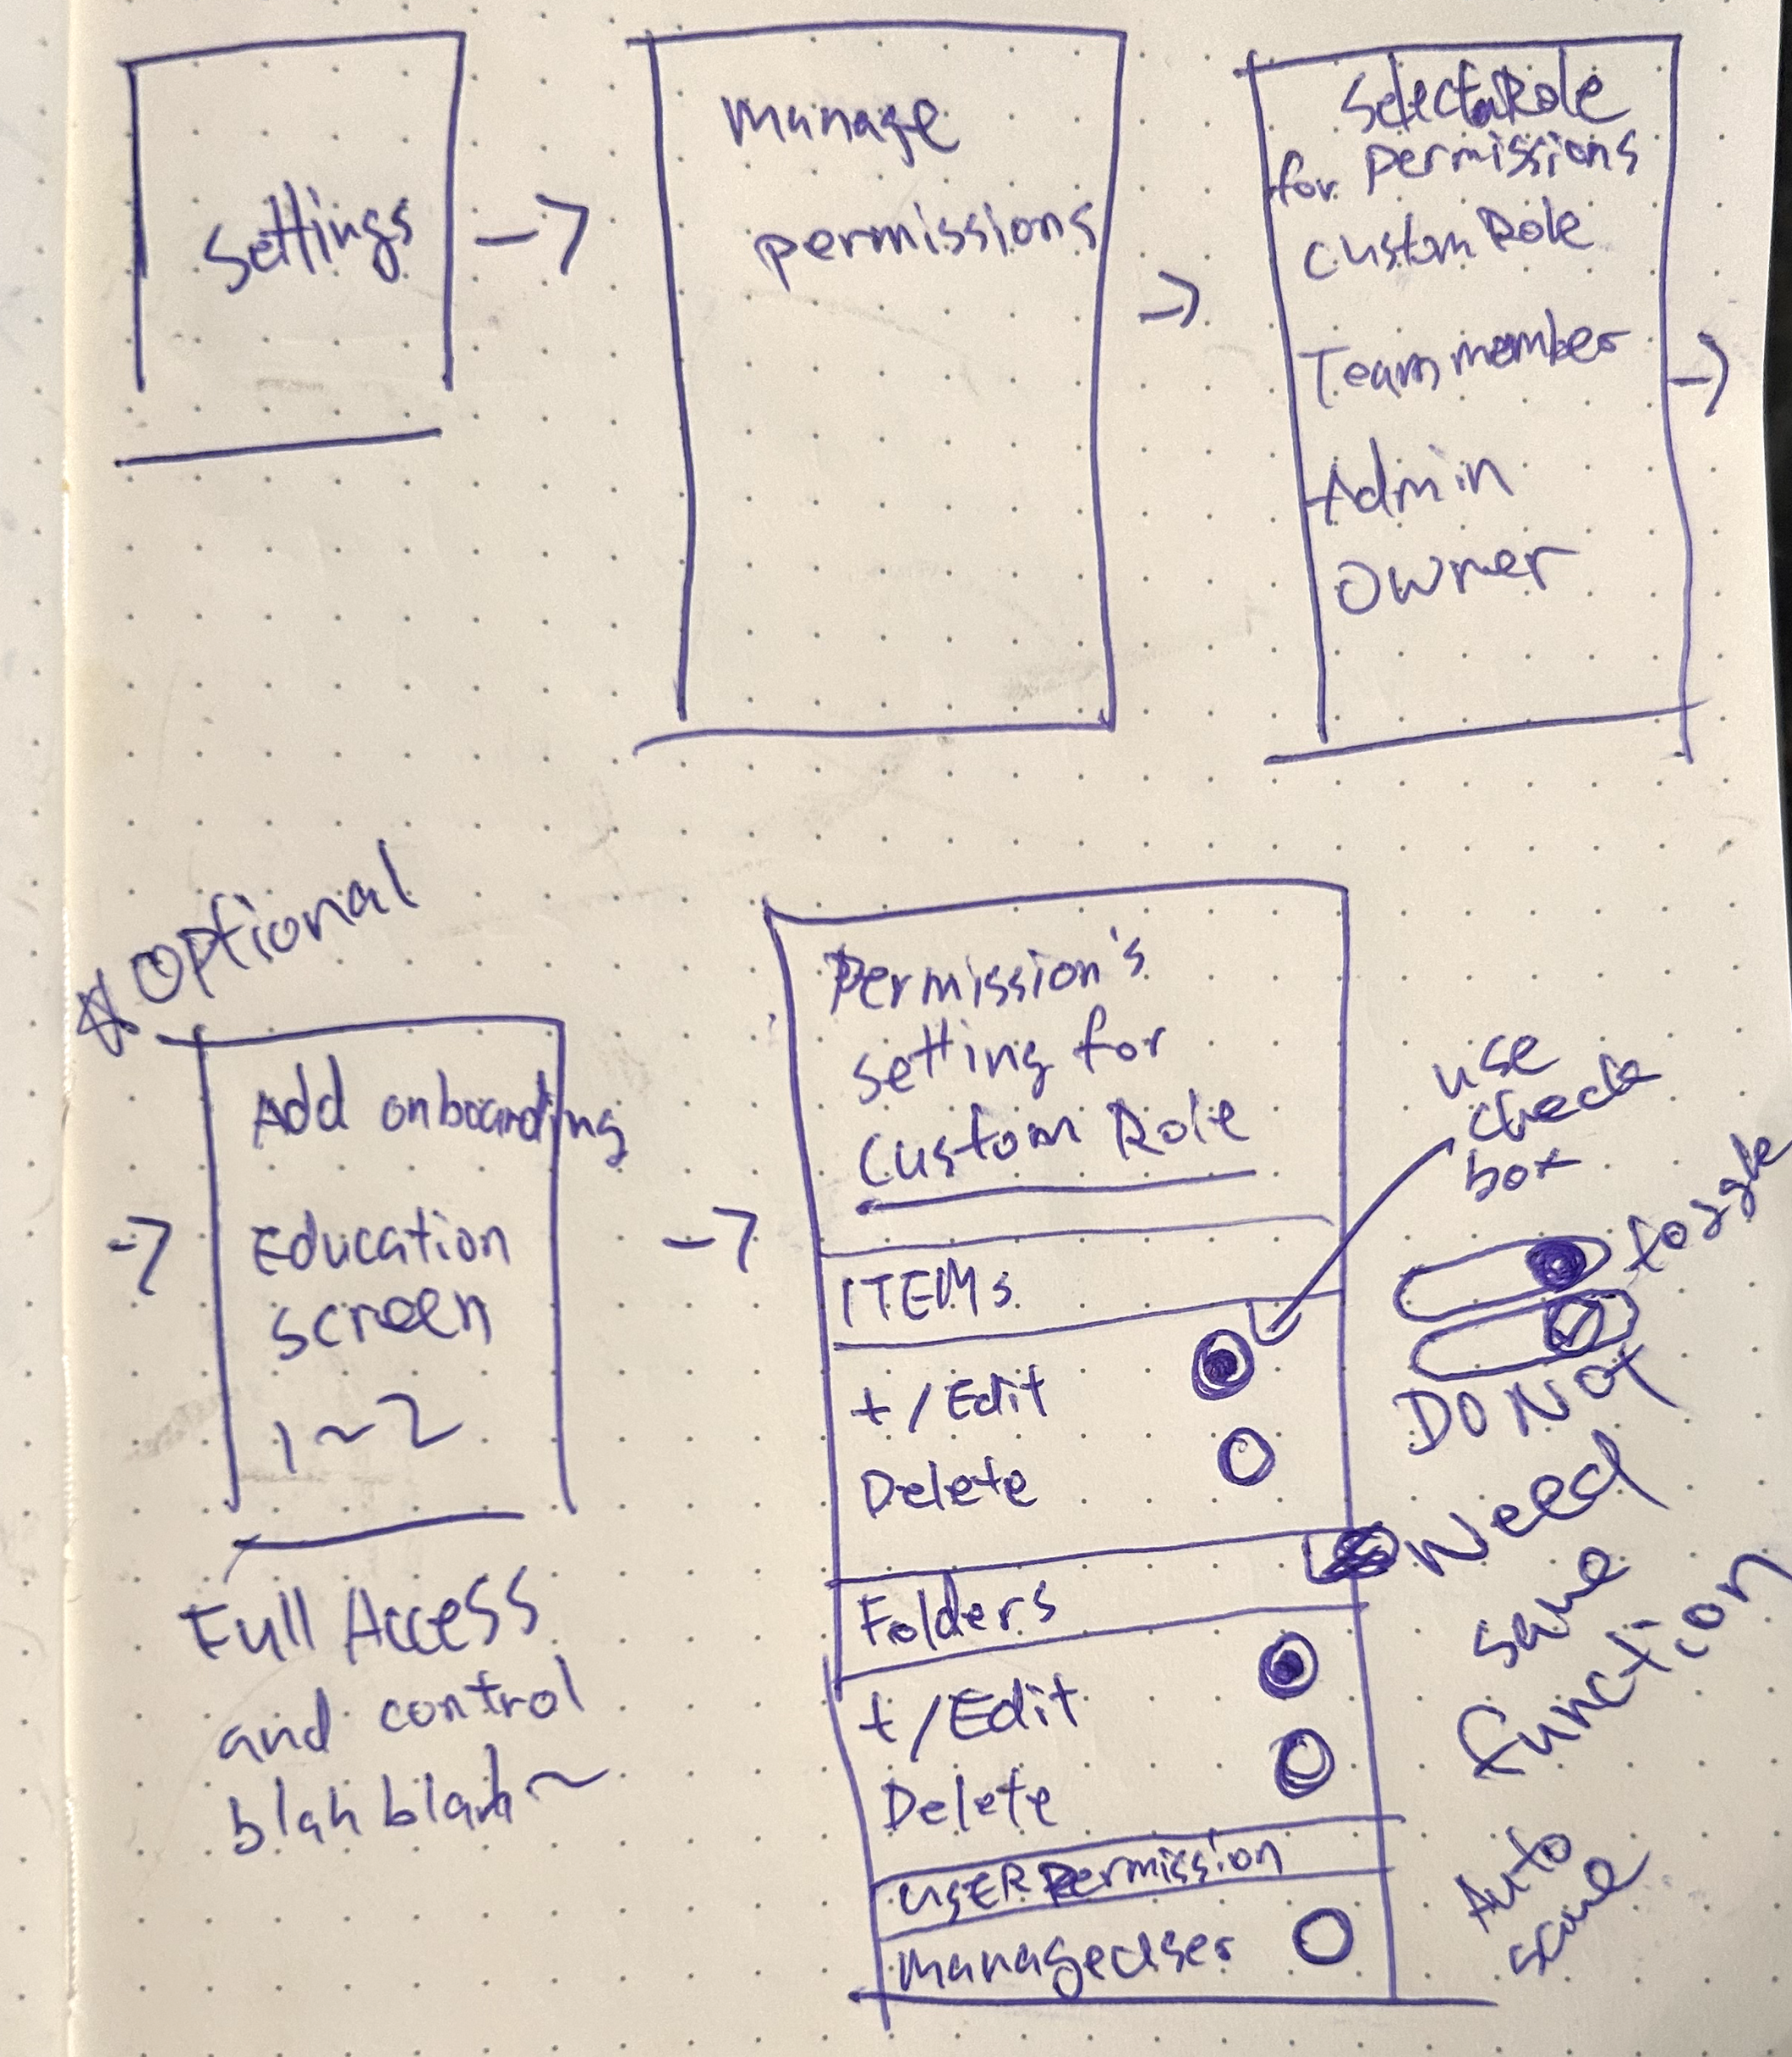 Settings
->
manage
permissions
->
Select a Role
for permissions
custom Role
Team member
Admin
owner
->
optional
->
Add onboarding
Education
screen
1~2
Full Access
and control
blah blah~
->
Permission's
setting for
Custom Role
ITEMs
+/Edit
Delete
Folders
+/Edit
Delete
USER Permission
manage User
use
check
box
toggle
DO NOT
Need
save
function
Auto
save